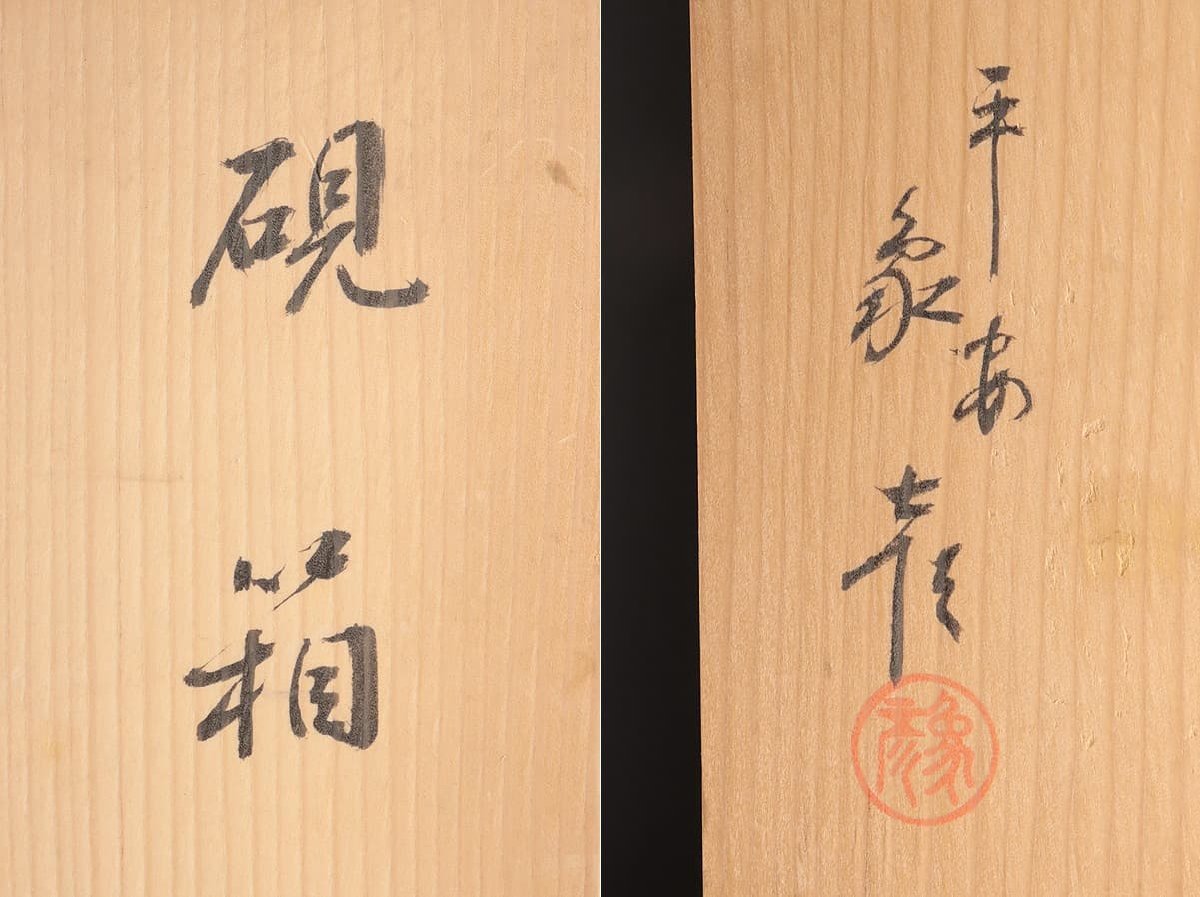 硯箱
平安
象彦
象彦